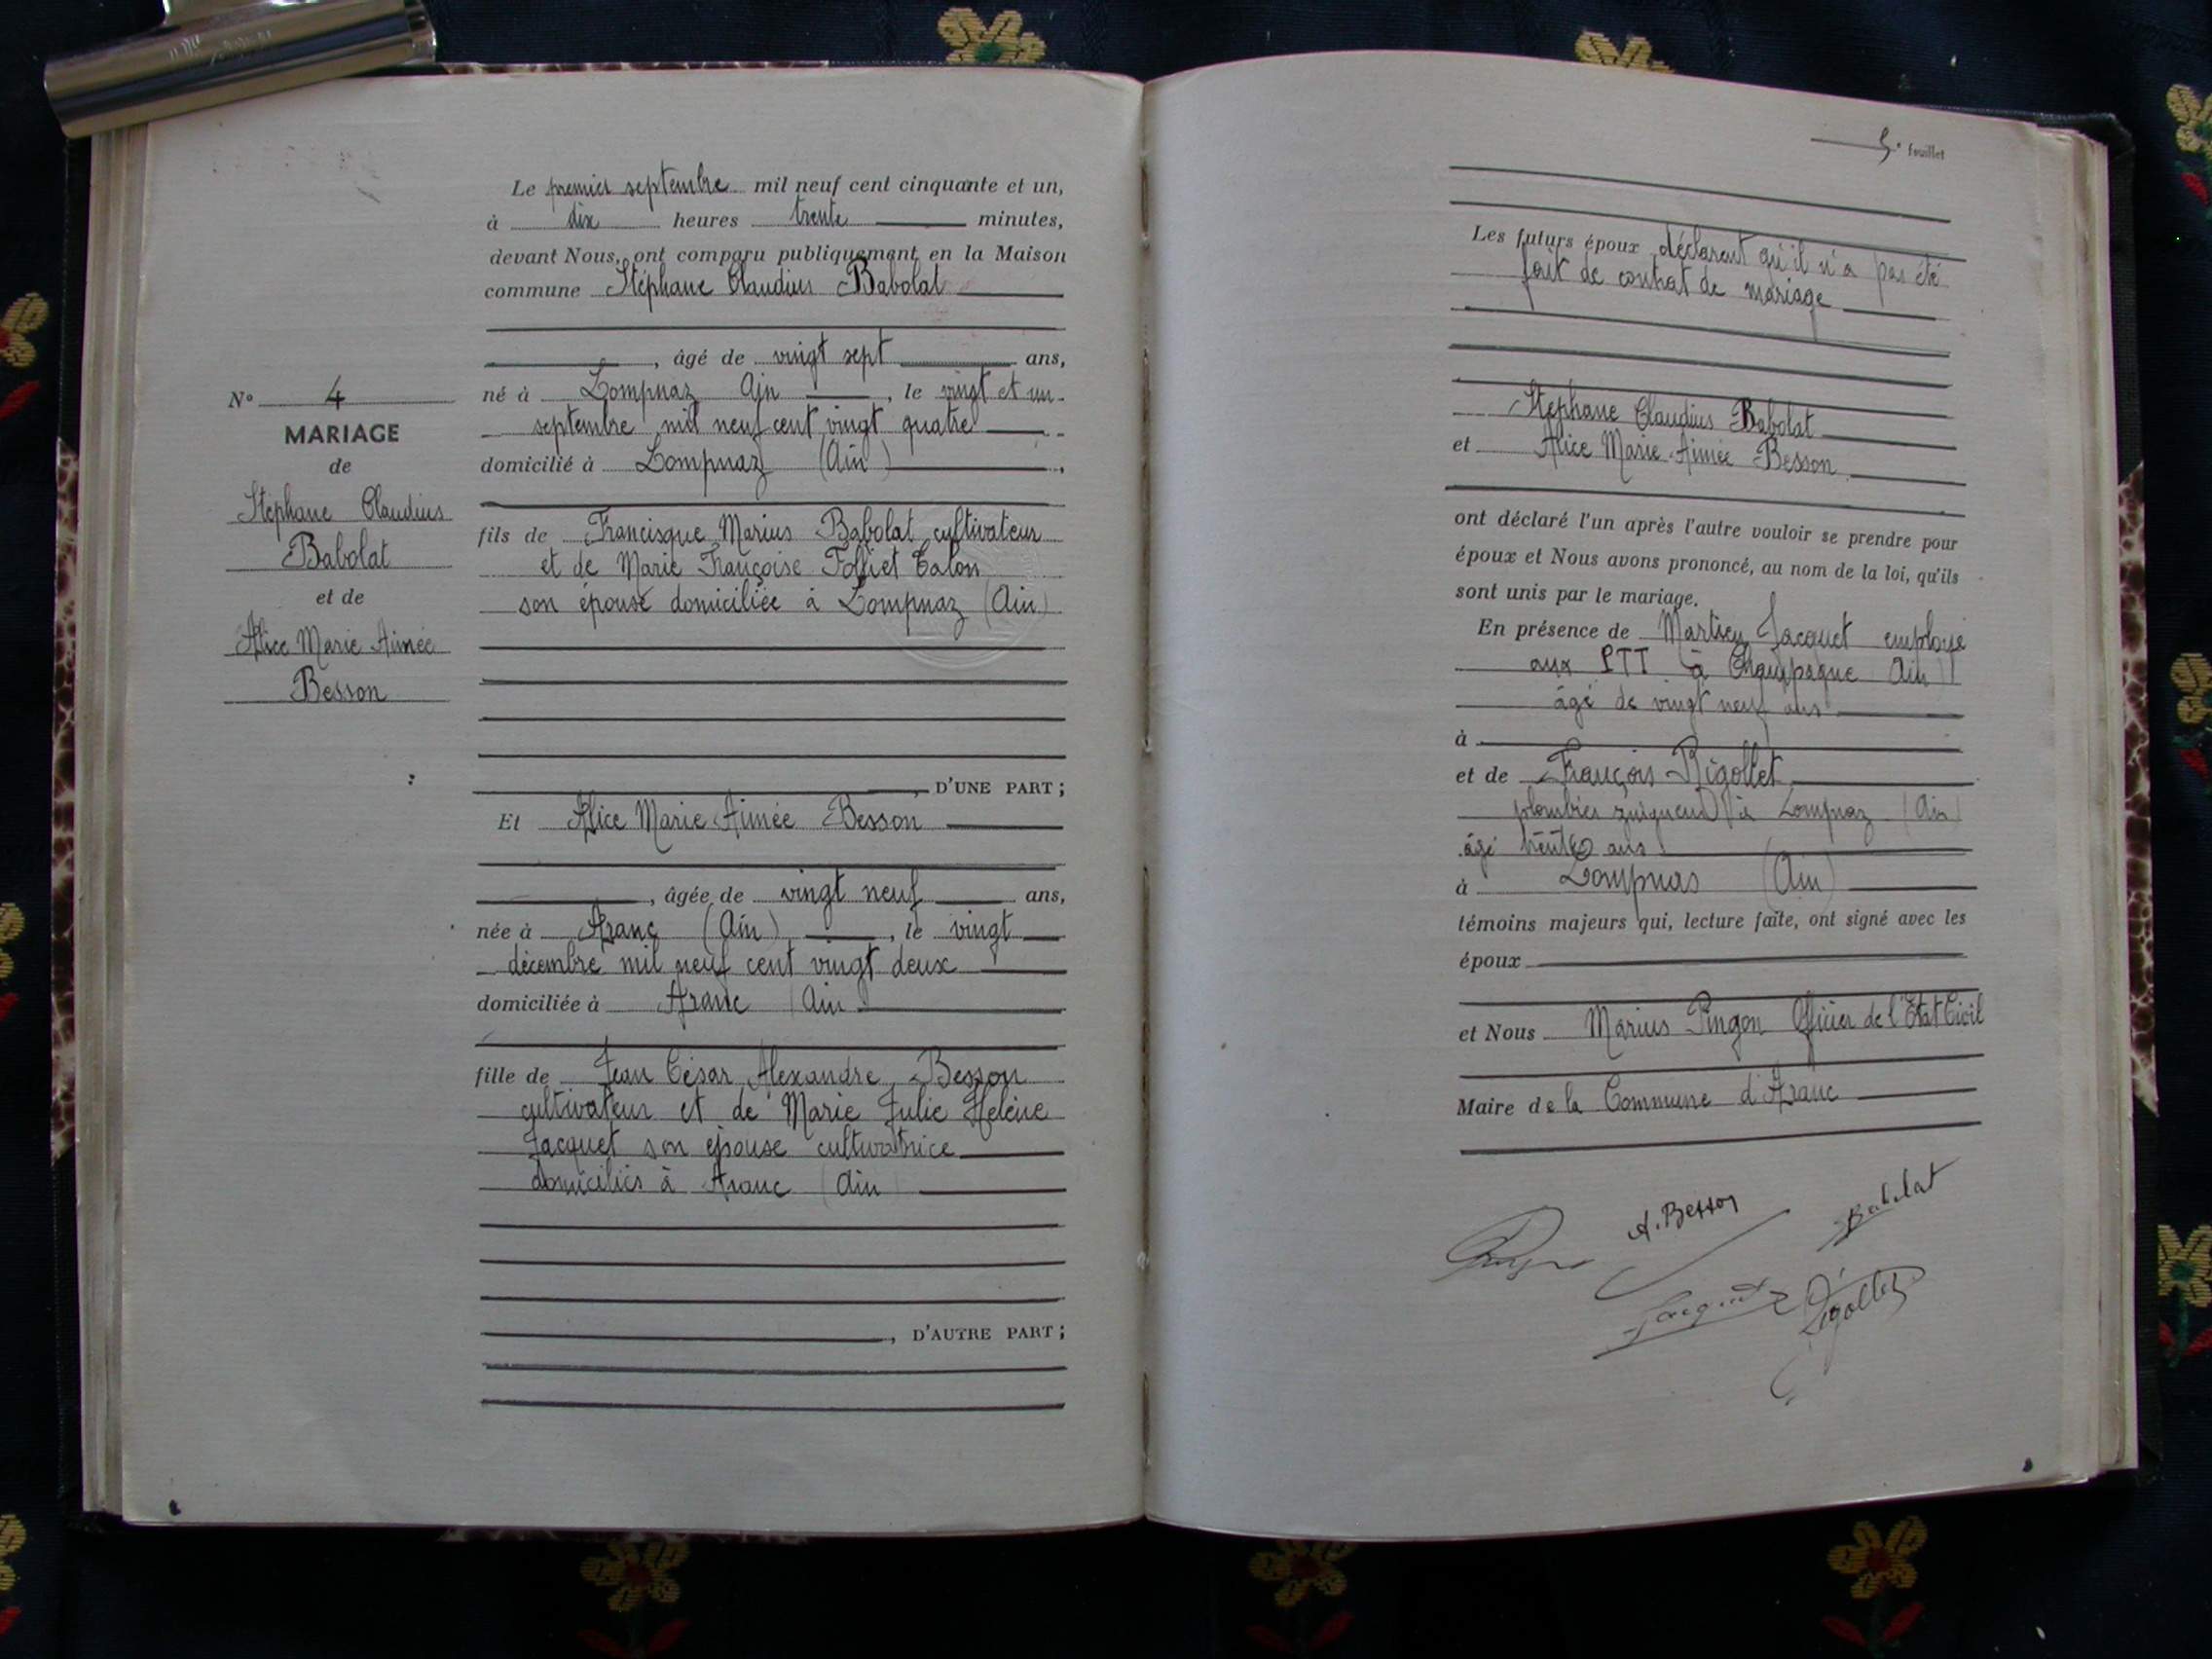 Le premier septembre mil neuf cent cinquante et un,
à dix heures trente minutes,
devant Nous, ont comparu publiquement en la Maison
commune Stéphane Claudius Babolat
, âgé de vingt sept ans,
né à Lompnaz Ain, le vingt et un
septembre mil neuf cent vingt quatre
domicilié à Lompnaz (Ain),
fils de Francisque Marius Babolat cultivateur
et de Marie Françoise Folliet Calon
son épouse domiciliée à Lompnaz (Ain)
, D'UNE PART ;
Et Alice Marie Aimée Besson
, âgée de vingt neuf ans,
née à Aranc (Ain), le vingt
décembre mil neuf cent vingt deux
domiciliée à Aranc (Ain)
fille de Jean César Alexandre Besson
cultivateur et de Marie Julie Hélène
Jacquet son épouse cultivatrice
domiciliés à Aranc (Ain)
, D'AUTRE PART ;
N° 4
MARIAGE
de
Stéphane Claudius
Babolat
et de
Alice Marie Aimée
Besson
5e feuillet
Les futurs époux déclarent qu'il n'a pas été
fait de contrat de mariage
Stéphane Claudius Babolat
et Alice Marie Aimée Besson
ont déclaré l'un après l'autre vouloir se prendre pour
époux et Nous avons prononcé, au nom de la loi, qu'ils
sont unis par le mariage.
En présence de Jacquet employé
aux PTT à Champagne Ain
âgé de vingt neuf ans
à
et de François Rigollet
plombier zingueur à Lompnaz (Ain)
âgé trente ans
à Lompnas (Ain)
témoins majeurs qui, lecture faite, ont signé avec les
époux
et Nous Marius Pingon Officier de l'Etat Civil
Maire de la Commune d'Aranc
A. Besson
Babolat
Jacquet
Rigollet